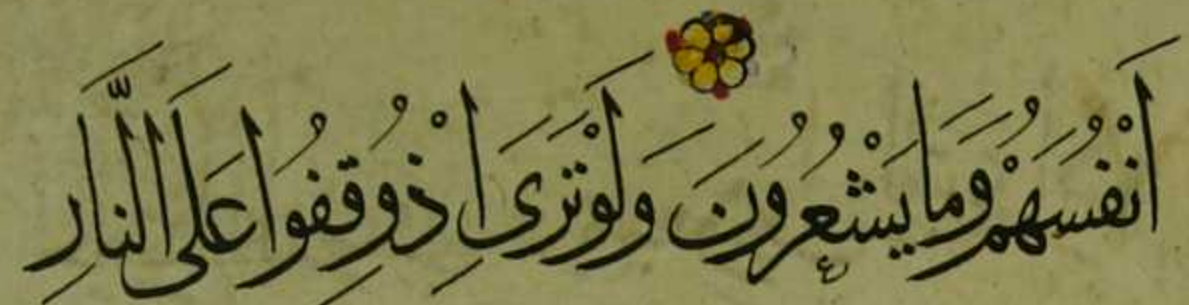 اَنْفُسَهُمْ وَمَا يَشْعُرُونَ وَلَوْ تَرَى اِذْ وُقِفُوا عَلَى النَّارِ